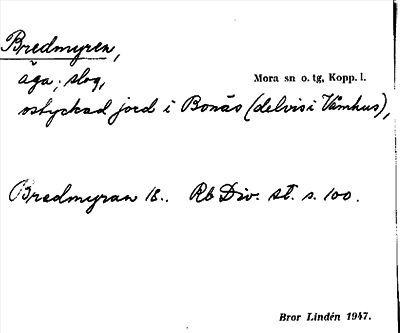 Bredmyren,
äga, slog,
Mora sn o. tg, Kopp. l.
ostyckad jord i Bonäs (delvis i Våmhus),
Bredmyran 18.. Rb Div. st. s. 100.
Bror Lindén 1947.